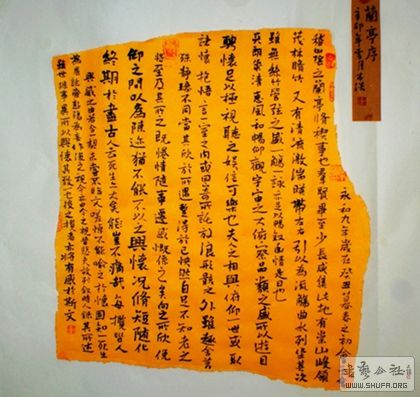 蘭亭序
永和九年歲在癸丑暮春之初會
稽山陰之蘭亭脩禊事也羣賢畢至少長咸集此地有崇山峻領
茂林脩竹又有清流激湍暎帶左右引以為流觴曲水列坐其次
雖無絲竹管弦之盛一觴一詠亦足以暢敘幽情是日也
天朗氣清惠風和暢仰觀宇宙之大俯察品類之盛所以遊目
騁懷足以極視聽之娛信可樂也夫人之相與俯仰一世或取
諸懷抱悟言一室之內或因寄所託放浪形骸之外雖趣舍萬
殊靜躁不同當其欣於所遇暫得於己快然自足不知老之
將至及其所之既惓情隨事遷感慨係之矣向之所欣俛
仰之間以為陳迹猶不能不以之興懷況脩短隨化
終期於盡古人云死生亦大矣豈不痛哉每攬昔人
興感之由若合一契未嘗不臨文嗟悼不能喻之於懷固知一死生
為虛誕齊彭殤為妄作後之視今亦由今之視昔悲夫故列敘時人錄其所述
雖世殊事異所以興懷其致一也後之攬者亦將有感於斯文
WWW.SHUFA.ORG